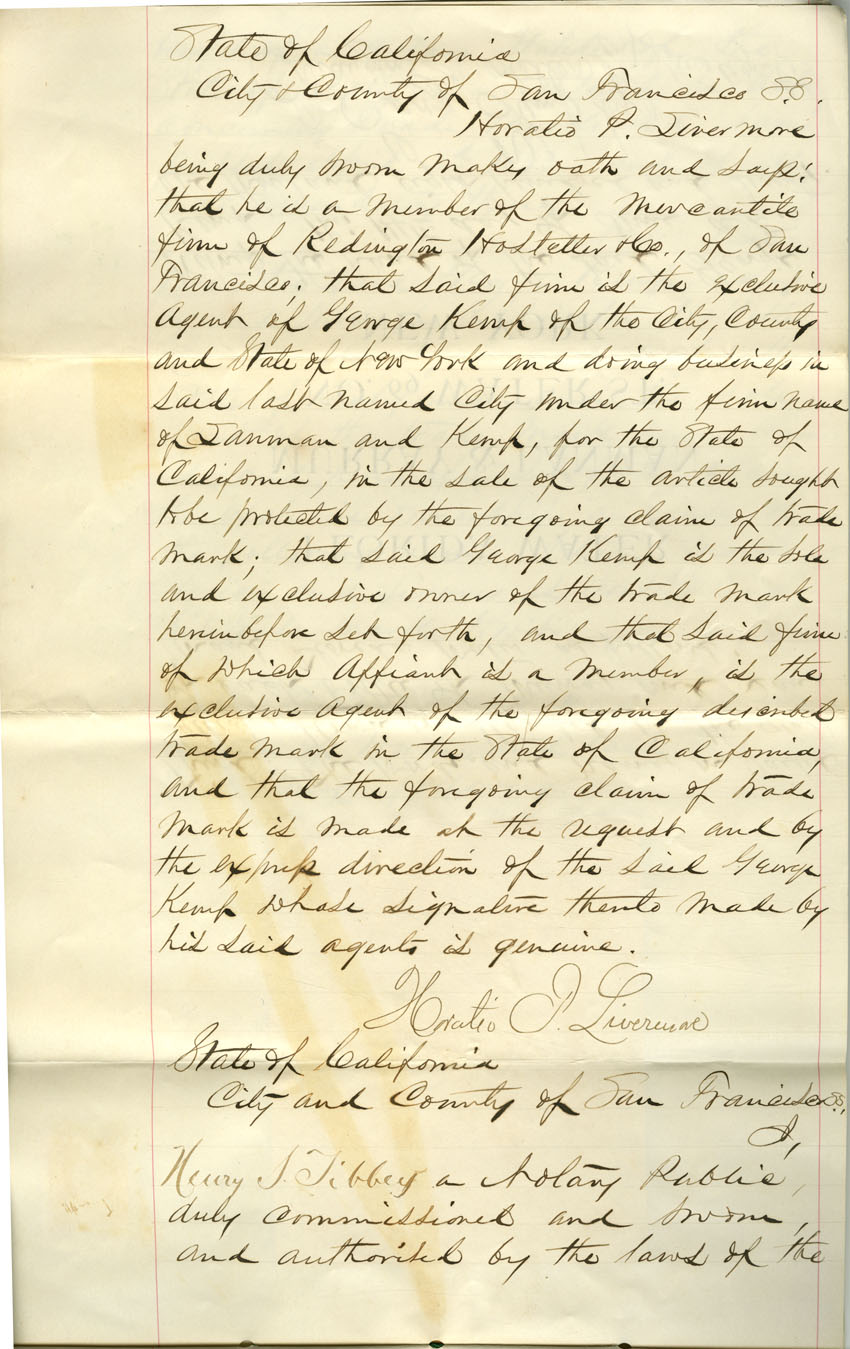 State of California
City & County of San Francisco S.S.
Horatio P. Livermore
being duly sworn makes oath and says:
that he is a member of the mercantile
firm of Redington Hostetter & Co., of San
Francisco; that said firm is the exclusive
Agent of George Kemp of the City, County
and State of New York and doing business in
said last named City under the firm name
of Lanman and Kemp, for the State of
California, in the sale of the article sought
to be protected by the foregoing claim of trade
mark; that said George Kemp is the sole
and exclusive owner of the trade mark
hereinbefore set forth, and that said firm
of which Affiant is a member, is the
exclusive Agent of the foregoing described
trade mark in the State of California,
and that the foregoing claim of trade
mark is made at the request and by
the express direction of the said George
Kemp whose signature thereto made by
his said agents is genuine.
Horatio P. Livermore
State of California
City and County of San Francisco S.S.,
I,
Henry S. Tibbey a Notary Public,
duly commissioned and sworn,
and authorised by the laws of the